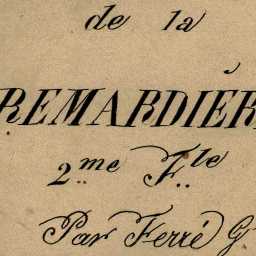 de la
REMARDIÉR
2.me F.lle
Par Ferré G